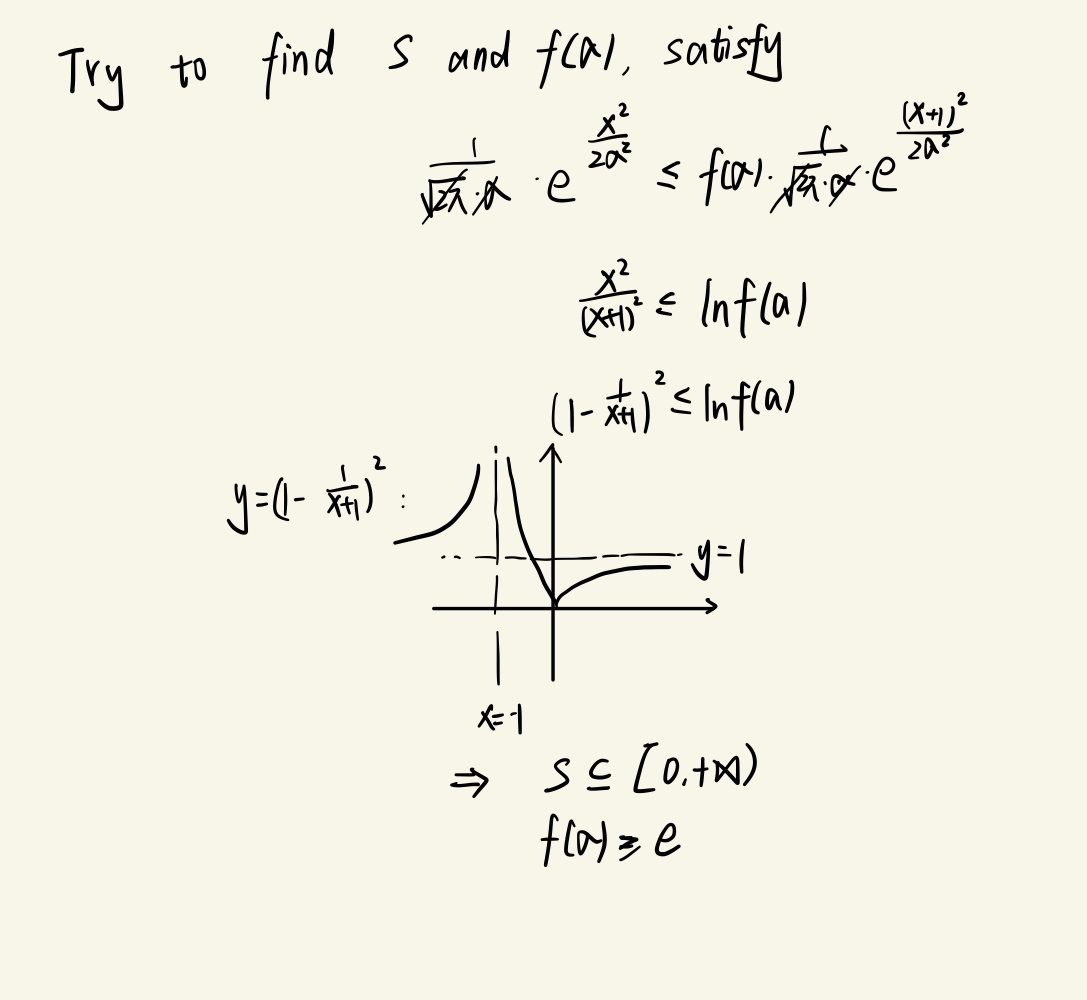 Try to find S and f(a), satisfy
1/(√2π·a) · e^(x²/2a²) ≤ f(a) · 1/(√2π·a) · e^((x+1)²/2a²)
x²/(x+1)² ≤ ln f(a)
(1 - 1/(x+1))² ≤ ln f(a)
y=(1 - 1/(x+1))² :
y=1
x=-1
⇒ S ⊆ [0,+∞)
f(a) ≥ e